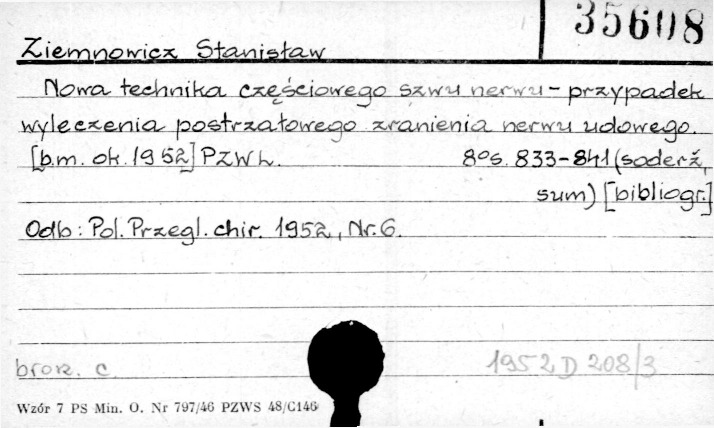 35608
Ziemnowicz Stanisław
Nowa technika częściowego szwu nerwu - przypadek
wyleczenia postrzałowego zranienia nerwu udowego.
[b.m. ok. 1952] PZWL. 8° s. 833-841 (soderż,
sum) [bibliogr.]
Odb: Pol. Przegl. chir. 1952, Nr. 6.
brosz. c. 1952 D 208/3
Wzór 7 PS Min. O. Nr 797/46 PZWS 48/C146